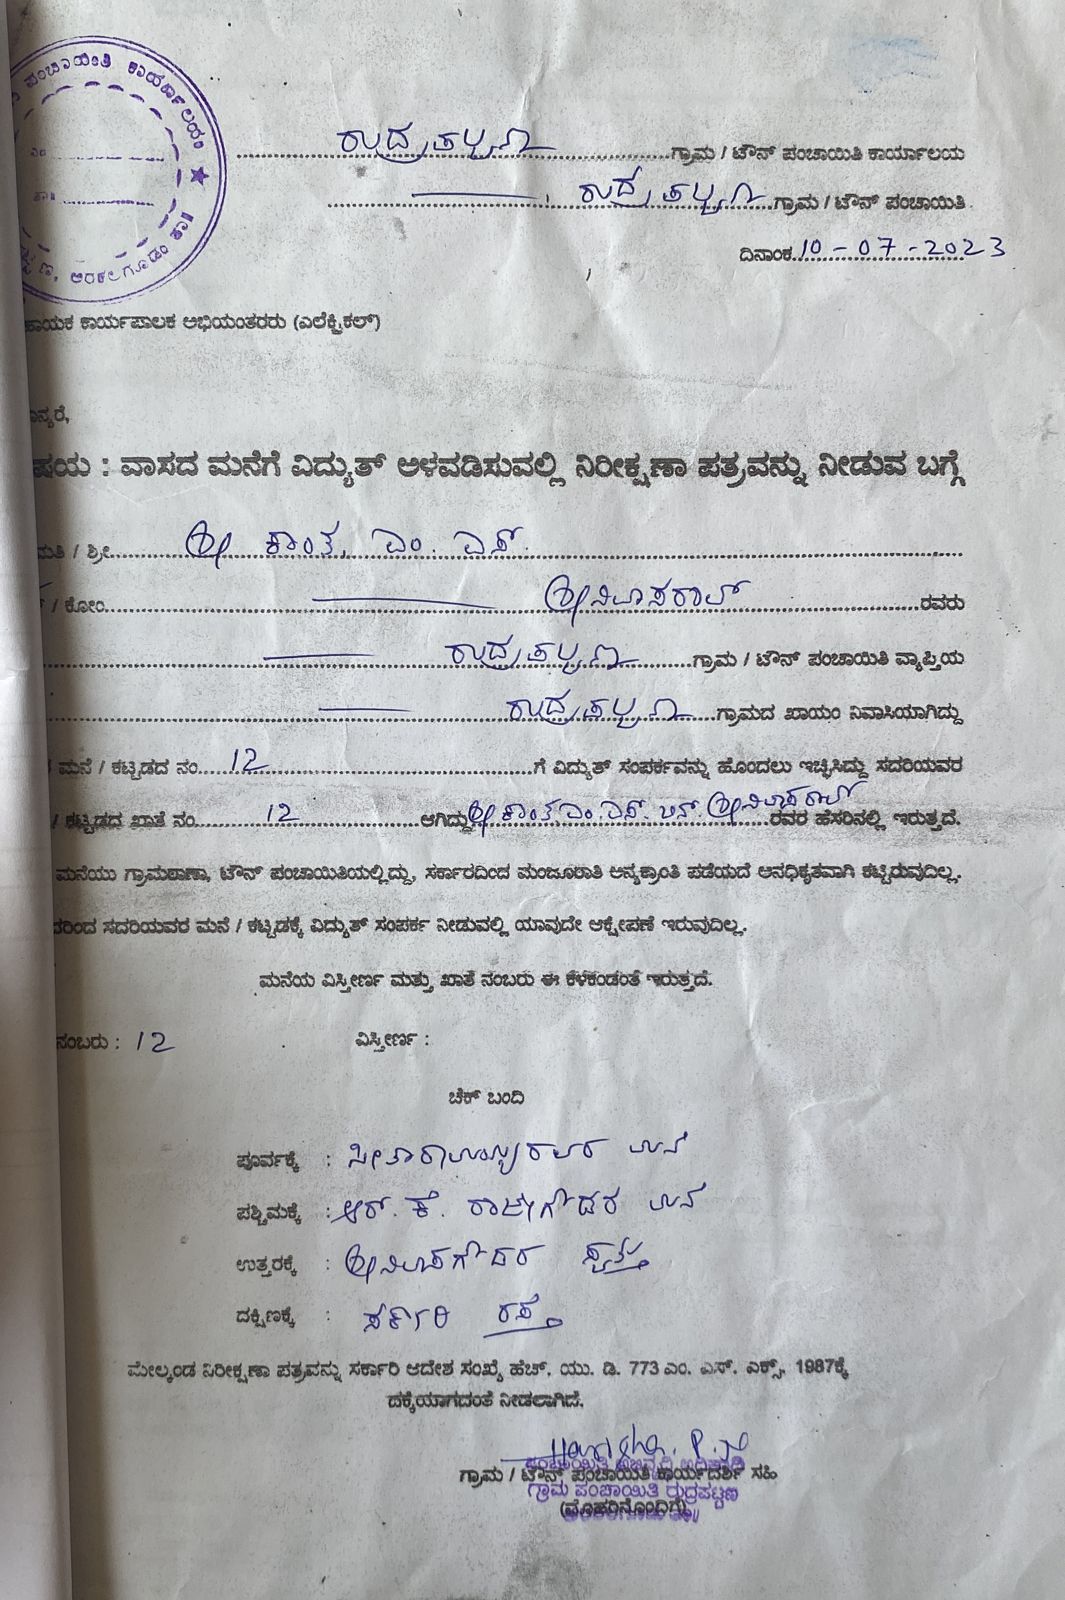 ಪಂಚಾಯಿತಿ ಕಾರ್ಯಾಲಯ ★
ರುದ್ರಪಟ್ಟಣ ಗ್ರಾಮ / ಟೌನ್ ಪಂಚಾಯಿತಿ ಕಾರ್ಯಾಲಯ
ರುದ್ರಪಟ್ಟಣ ಗ್ರಾಮ / ಟೌನ್ ಪಂಚಾಯಿತಿ
ದಿನಾಂಕ 10-07-2023
ಹಾಯಕ ಕಾರ್ಯಪಾಲಕ ಅಭಿಯಂತರರು (ಎಲೆಕ್ಟ್ರಿಕಲ್)
ನ್ಯರೆ,
ಷಯ : ವಾಸದ ಮನೆಗೆ ವಿದ್ಯುತ್ ಅಳವಡಿಸುವಲ್ಲಿ ನಿರೀಕ್ಷಣಾ ಪತ್ರವನ್ನು ನೀಡುವ ಬಗ್ಗೆ
ಮತಿ / ಶ್ರೀ ಶ್ರೀಕಾಂತ. ಎಂ. ಎಸ್.
/ ಕೋಂ ಶ್ರೀನಿವಾಸರಾವ್ ರವರು
ರುದ್ರಪಟ್ಟಣ ಗ್ರಾಮ / ಟೌನ್ ಪಂಚಾಯಿತಿ ವ್ಯಾಪ್ತಿಯ
ರುದ್ರಪಟ್ಟಣ ಗ್ರಾಮದ ಖಾಯಂ ನಿವಾಸಿಯಾಗಿದ್ದು
ಮನೆ / ಕಟ್ಟಡದ ನಂ. 12 ಗೆ ವಿದ್ಯುತ್ ಸಂಪರ್ಕವನ್ನು ಹೊಂದಲು ಇಚ್ಛಿಸಿದ್ದು ಸದರಿಯವರ
/ ಕಟ್ಟಡದ ಖಾತೆ ನಂ. 12 ಆಗಿದ್ದು ಶ್ರೀಕಾಂತ ಎಂ.ಎಸ್. ಬಿನ್. ಶ್ರೀನಿವಾಸರಾವ್ ರವರ ಹೆಸರಿನಲ್ಲಿ ಇರುತ್ತದೆ.
ಮನೆಯು ಗ್ರಾಮಠಾಣಾ, ಟೌನ್ ಪಂಚಾಯಿತಿಯಲ್ಲಿದ್ದು, ಸರ್ಕಾರದಿಂದ ಮಂಜೂರಾತಿ ಅನ್ಯಕ್ರಾಂತಿ ಪಡೆಯದೆ ಅನಧಿಕೃತವಾಗಿ ಕಟ್ಟಿರುವುದಿಲ್ಲ.
ದರಿಂದ ಸದರಿಯವರ ಮನೆ / ಕಟ್ಟಡಕ್ಕೆ ವಿದ್ಯುತ್ ಸಂಪರ್ಕ ನೀಡುವಲ್ಲಿ ಯಾವುದೇ ಆಕ್ಷೇಪಣೆ ಇರುವುದಿಲ್ಲ.
ಮನೆಯ ವಿಸ್ತೀರ್ಣ ಮತ್ತು ಖಾತೆ ನಂಬರು ಈ ಕೆಳಕಂಡಂತೆ ಇರುತ್ತದೆ.
ನಂಬರು : 12 ವಿಸ್ತೀರ್ಣ :
ಚೆಕ್ ಬಂದಿ
ಪೂರ್ವಕ್ಕೆ : ಮನೆ
ಪಶ್ಚಿಮಕ್ಕೆ : ಆರ್. ಕೆ. ರಾಜೇಗೌಡರ ಮನೆ
ಉತ್ತರಕ್ಕೆ : ಶ್ರೀನಿವಾಸಗೌಡರ ಸ್ವತ್ತು
ದಕ್ಷಿಣಕ್ಕೆ : ಸರ್ಕಾರಿ ರಸ್ತೆ
ಮೇಲ್ಕಂಡ ನಿರೀಕ್ಷಣಾ ಪತ್ರವನ್ನು ಸರ್ಕಾರಿ ಆದೇಶ ಸಂಖ್ಯೆ ಹೆಚ್. ಯು. ಡಿ. 773 ಎಂ. ಎಸ್. ಎಕ್ಸ್. 1987ಕ್ಕೆ
ದಕ್ಕೆಯಾಗದಂತೆ ನೀಡಲಾಗಿದೆ.
Harisha. P. N
ಪಂಚಾಯಿತಿ ಅಭಿವೃದ್ಧಿ ಅಧಿಕಾರಿ
ಗ್ರಾಮ / ಟೌನ್ ಪಂಚಾಯಿತಿ ಕಾರ್ಯದರ್ಶಿ ಸಹಿ
ಗ್ರಾಮ ಪಂಚಾಯಿತಿ ರುದ್ರಪಟ್ಟಣ
(ಮೊಹರಿನೊಂದಿಗೆ)